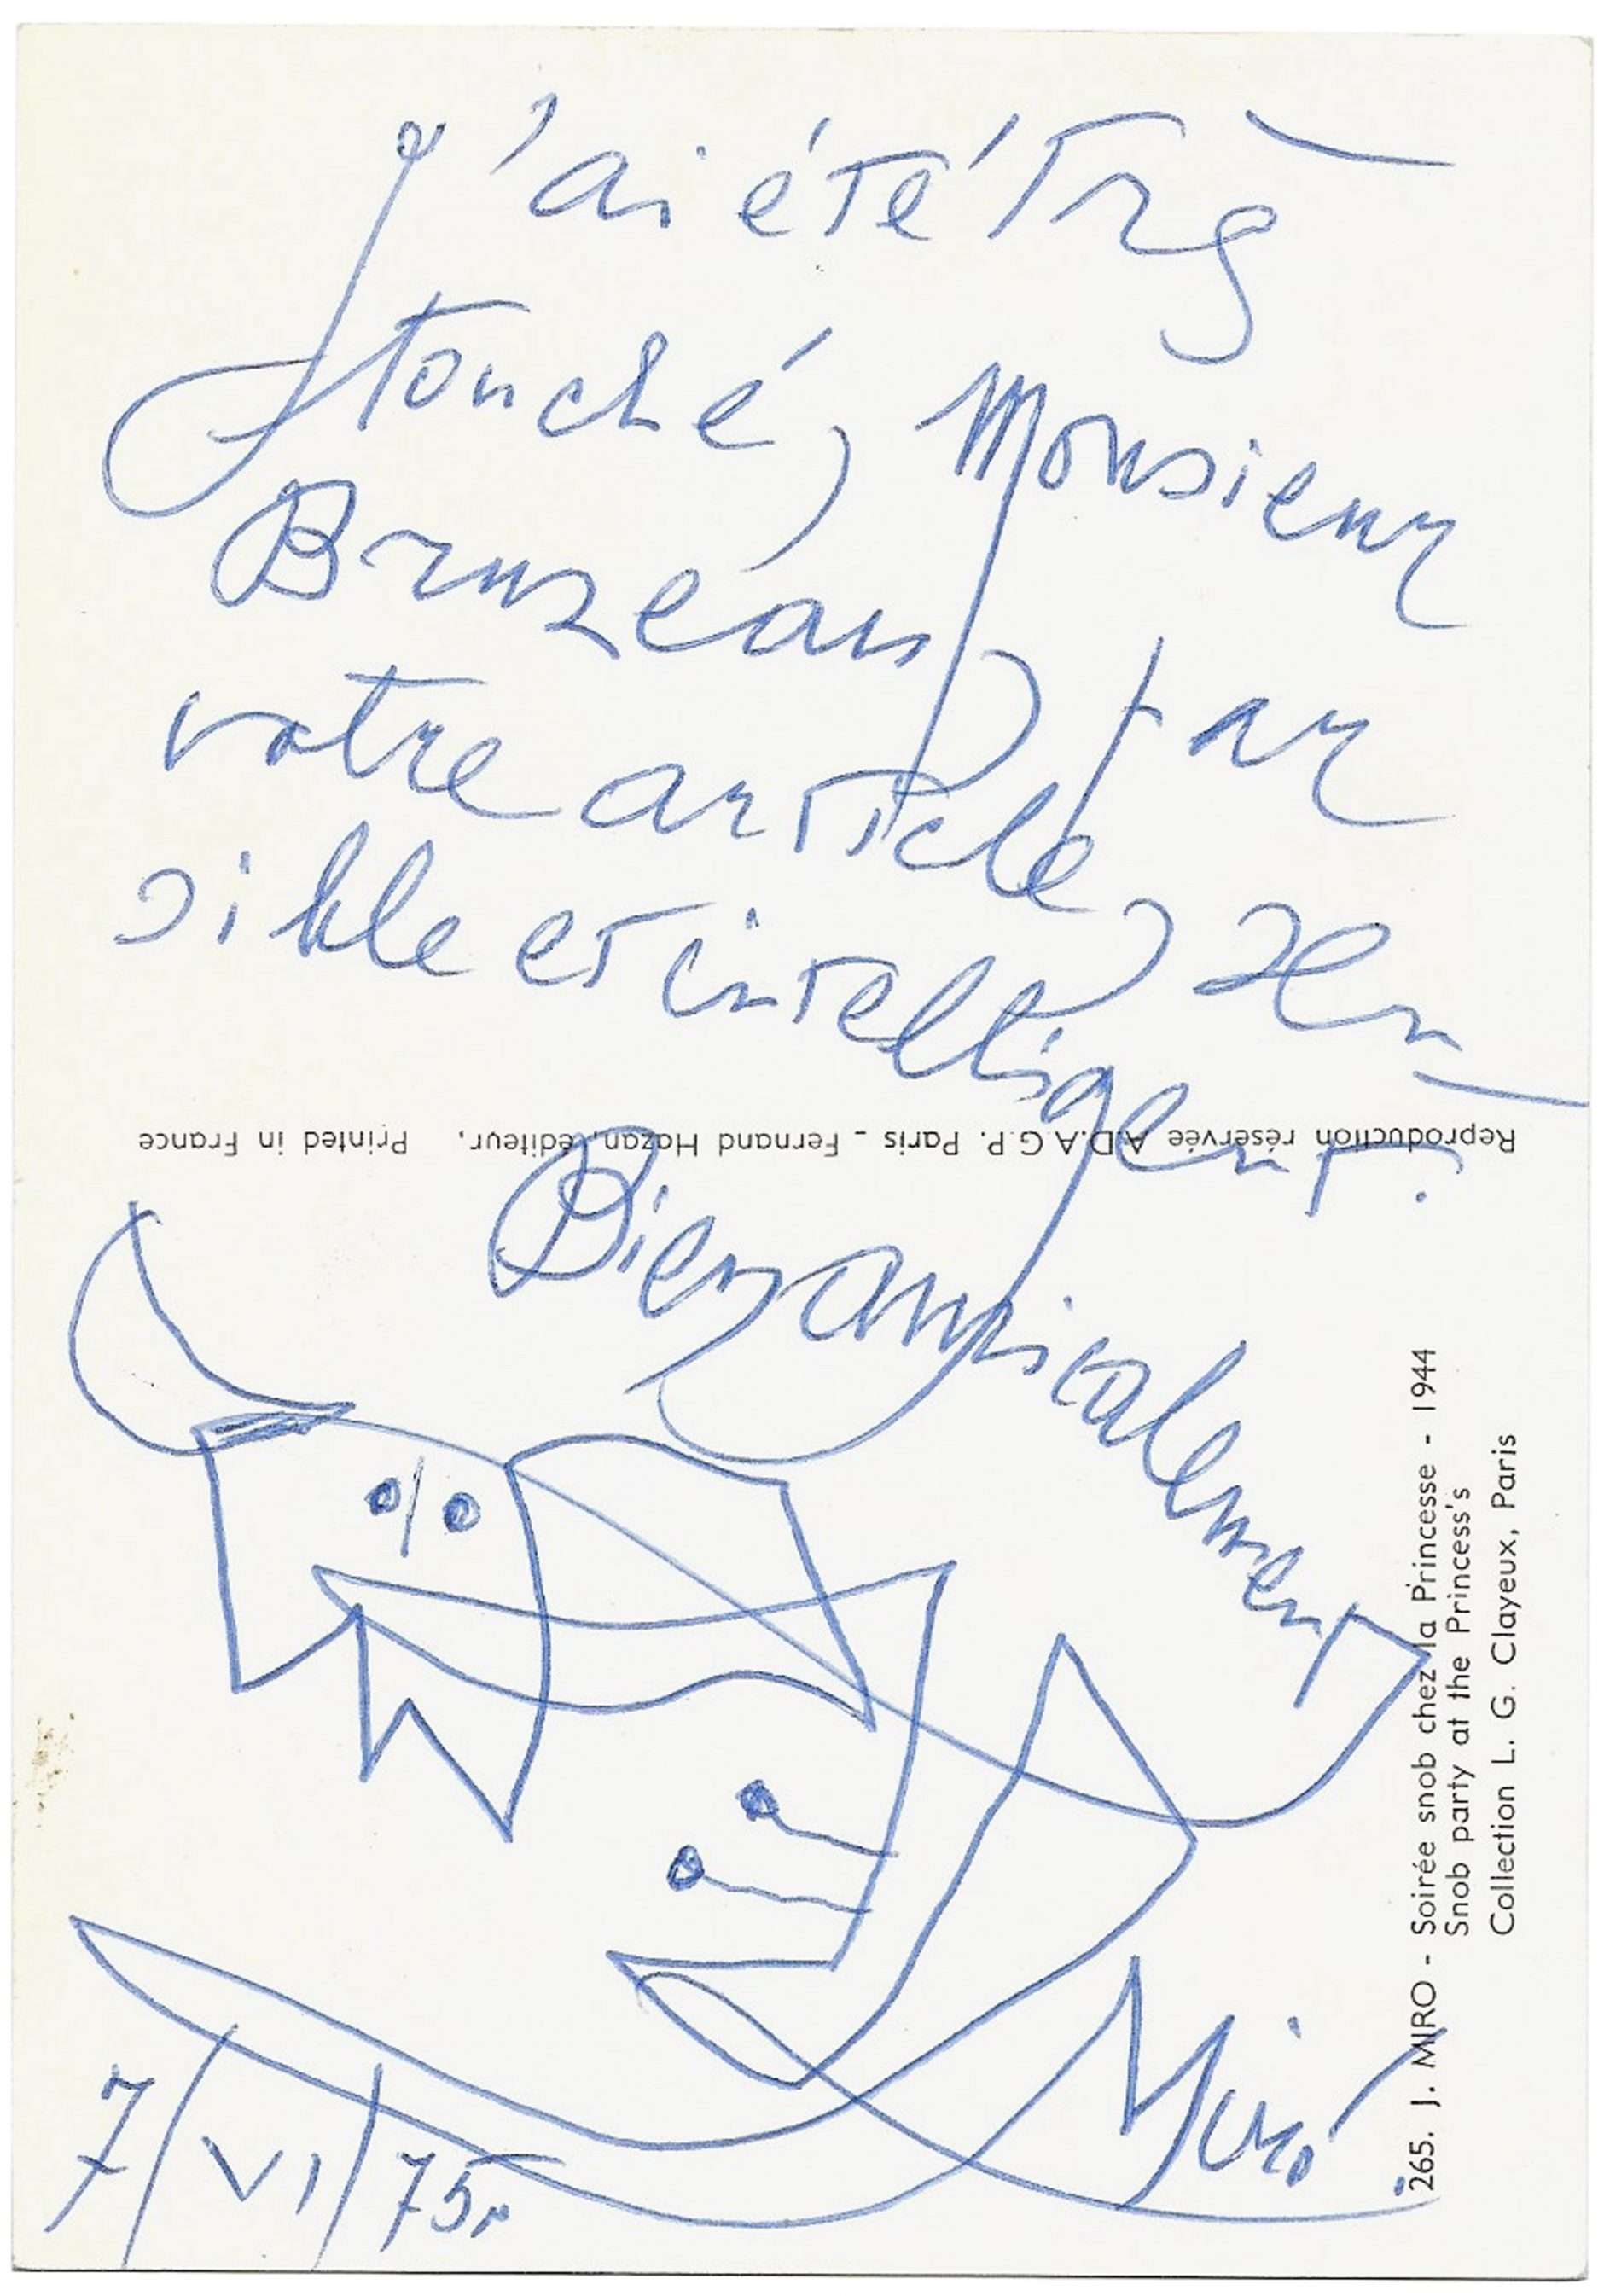 J'ai été très
touché, Monsieur
Bruzeau, par
votre article, sen-
sible et intelligent.
Bien amicalement
Miró.
7/VI/75.
Reproduction réservée A.D.A.G.P. Paris - Fernand Hazan, éditeur, Printed in France
265. J. MIRO - Soirée snob chez la Princesse - 1944
Snob party at the Princess's
Collection L. G. Clayeux, Paris